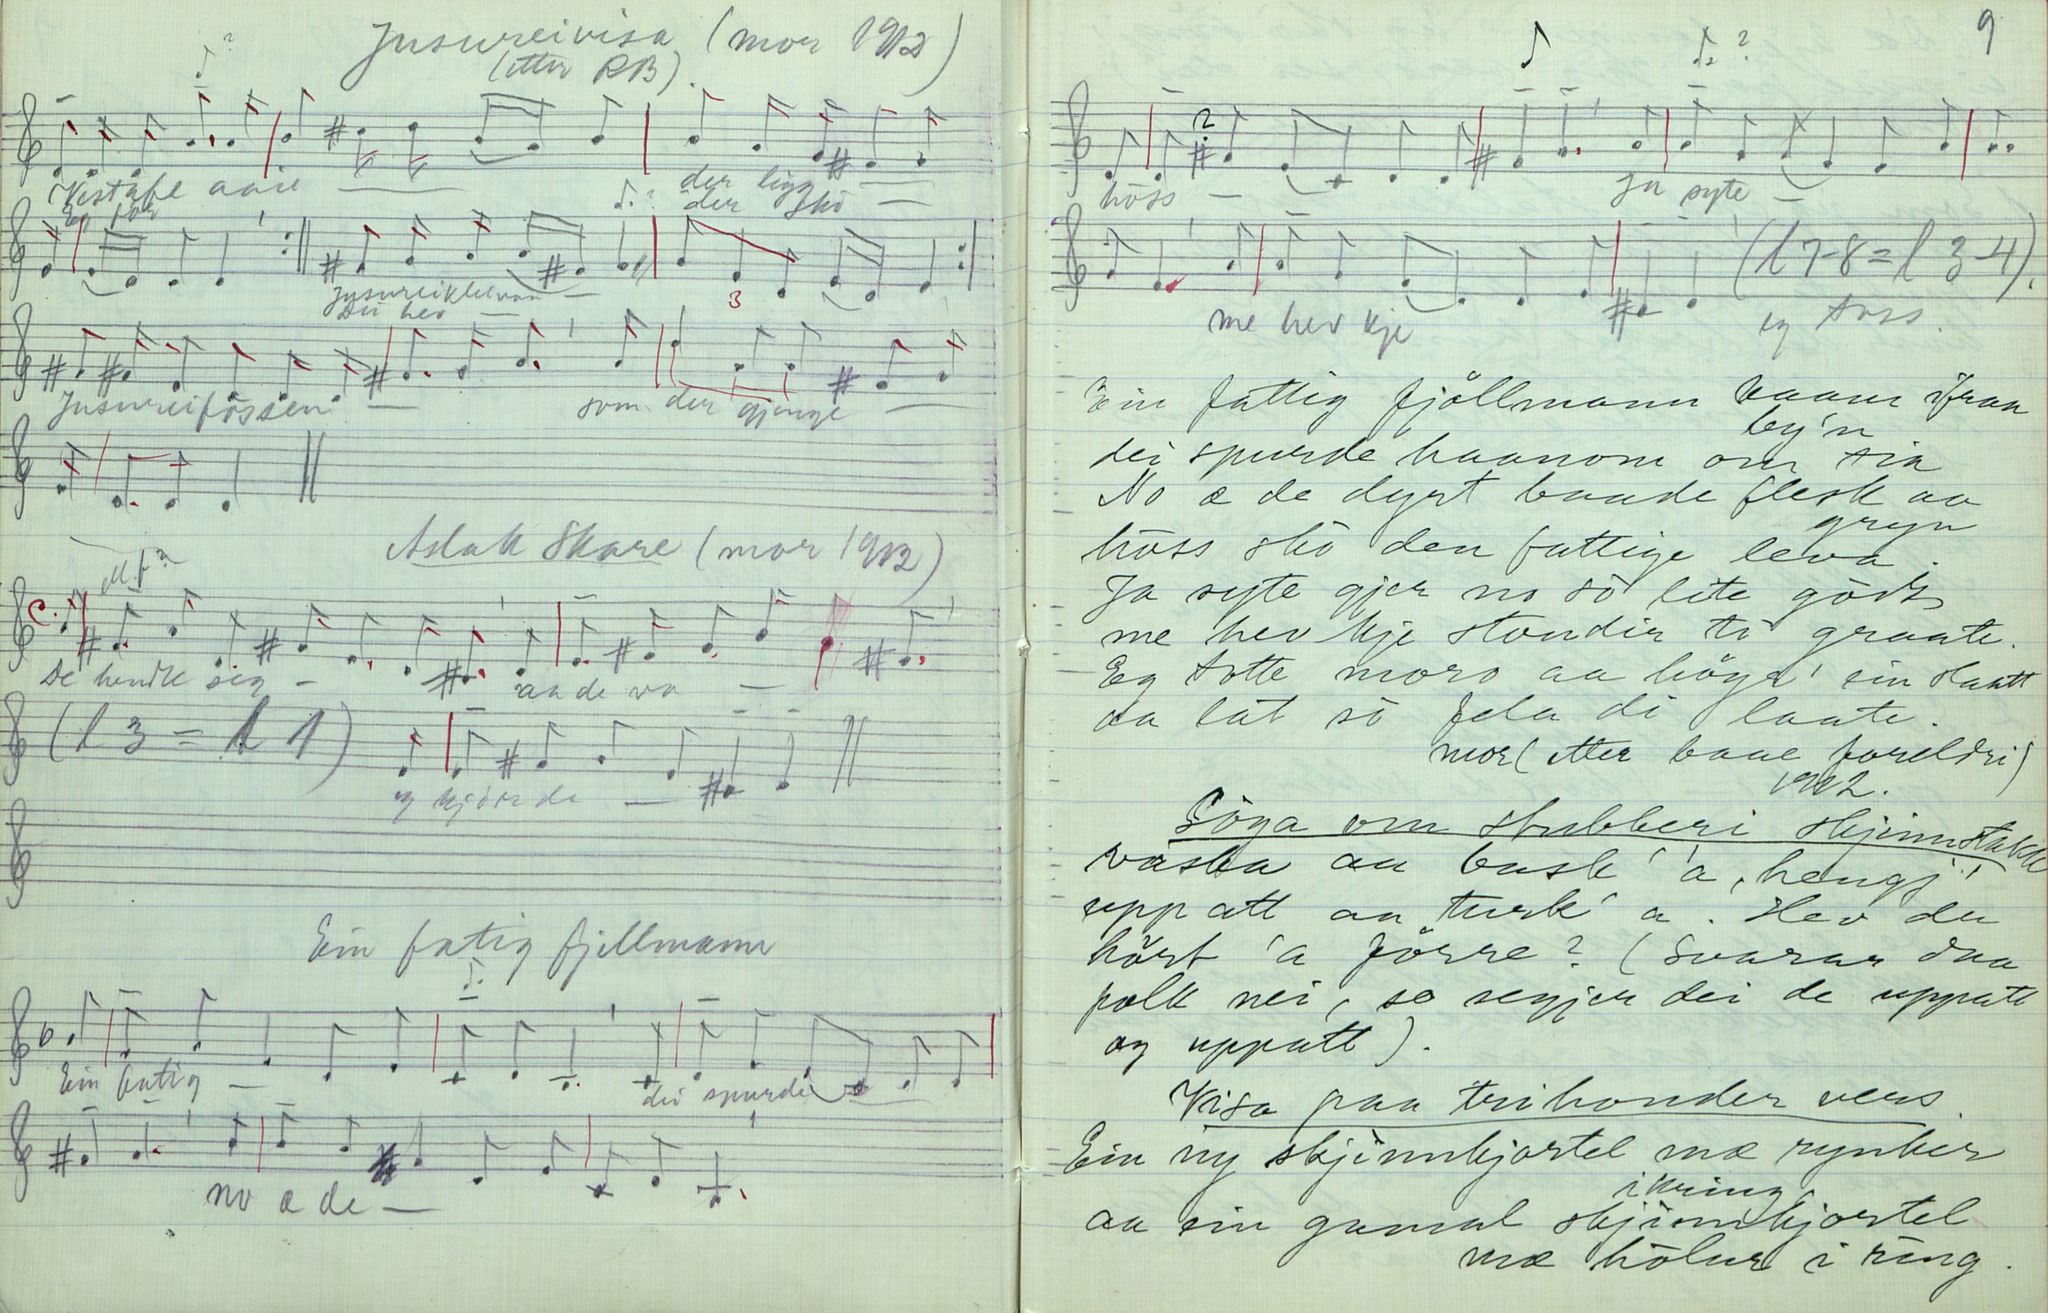 Jusureivisa (mor 1912)
(etter RB).
Vestafe aaie
Eg for
der ligg
der skò
Jusureiklevan
Du hev
Jusureifössen
som der gjenge
Aslak Skare (mor 1912)
M.f?
C.
De hendte seg
aa de va
(l 3 = l 1)
eg kjörde
Ein fatig fjellmann
Ein fatig
dei spurde
no æ de
9
höss
Ja syte
me hev kje
(l 7-8 = l 3-4).
eg totte
Ein fattig fjöllmann kaam ifraa
by'n
dei spurde haanom om sia
No æ de dyrt baade flesk aa
gryn
höss skò den fattige leva.
Ja syte gjer no sò lite göds
me hev kje stondir ti graate.
Eg totte moro aa höyra ein slaatt
aa lat sò fela di laate.
mor (etter baae foreldri)
1912.
Söga om stubberi skjinnstakk
vaska aa bask' 'a, hengj'
uppatt aa turk' a. Hev du
hört 'a förre? (Svarar daa
folk nei, so segjer dei de uppatt
og uppatt).
Visa paa trihonder vers.
Ein ny skjinnkjortel mæ rynker
ikring
aa ein gamal skjinnkjortel
mæ hòlur i ring.